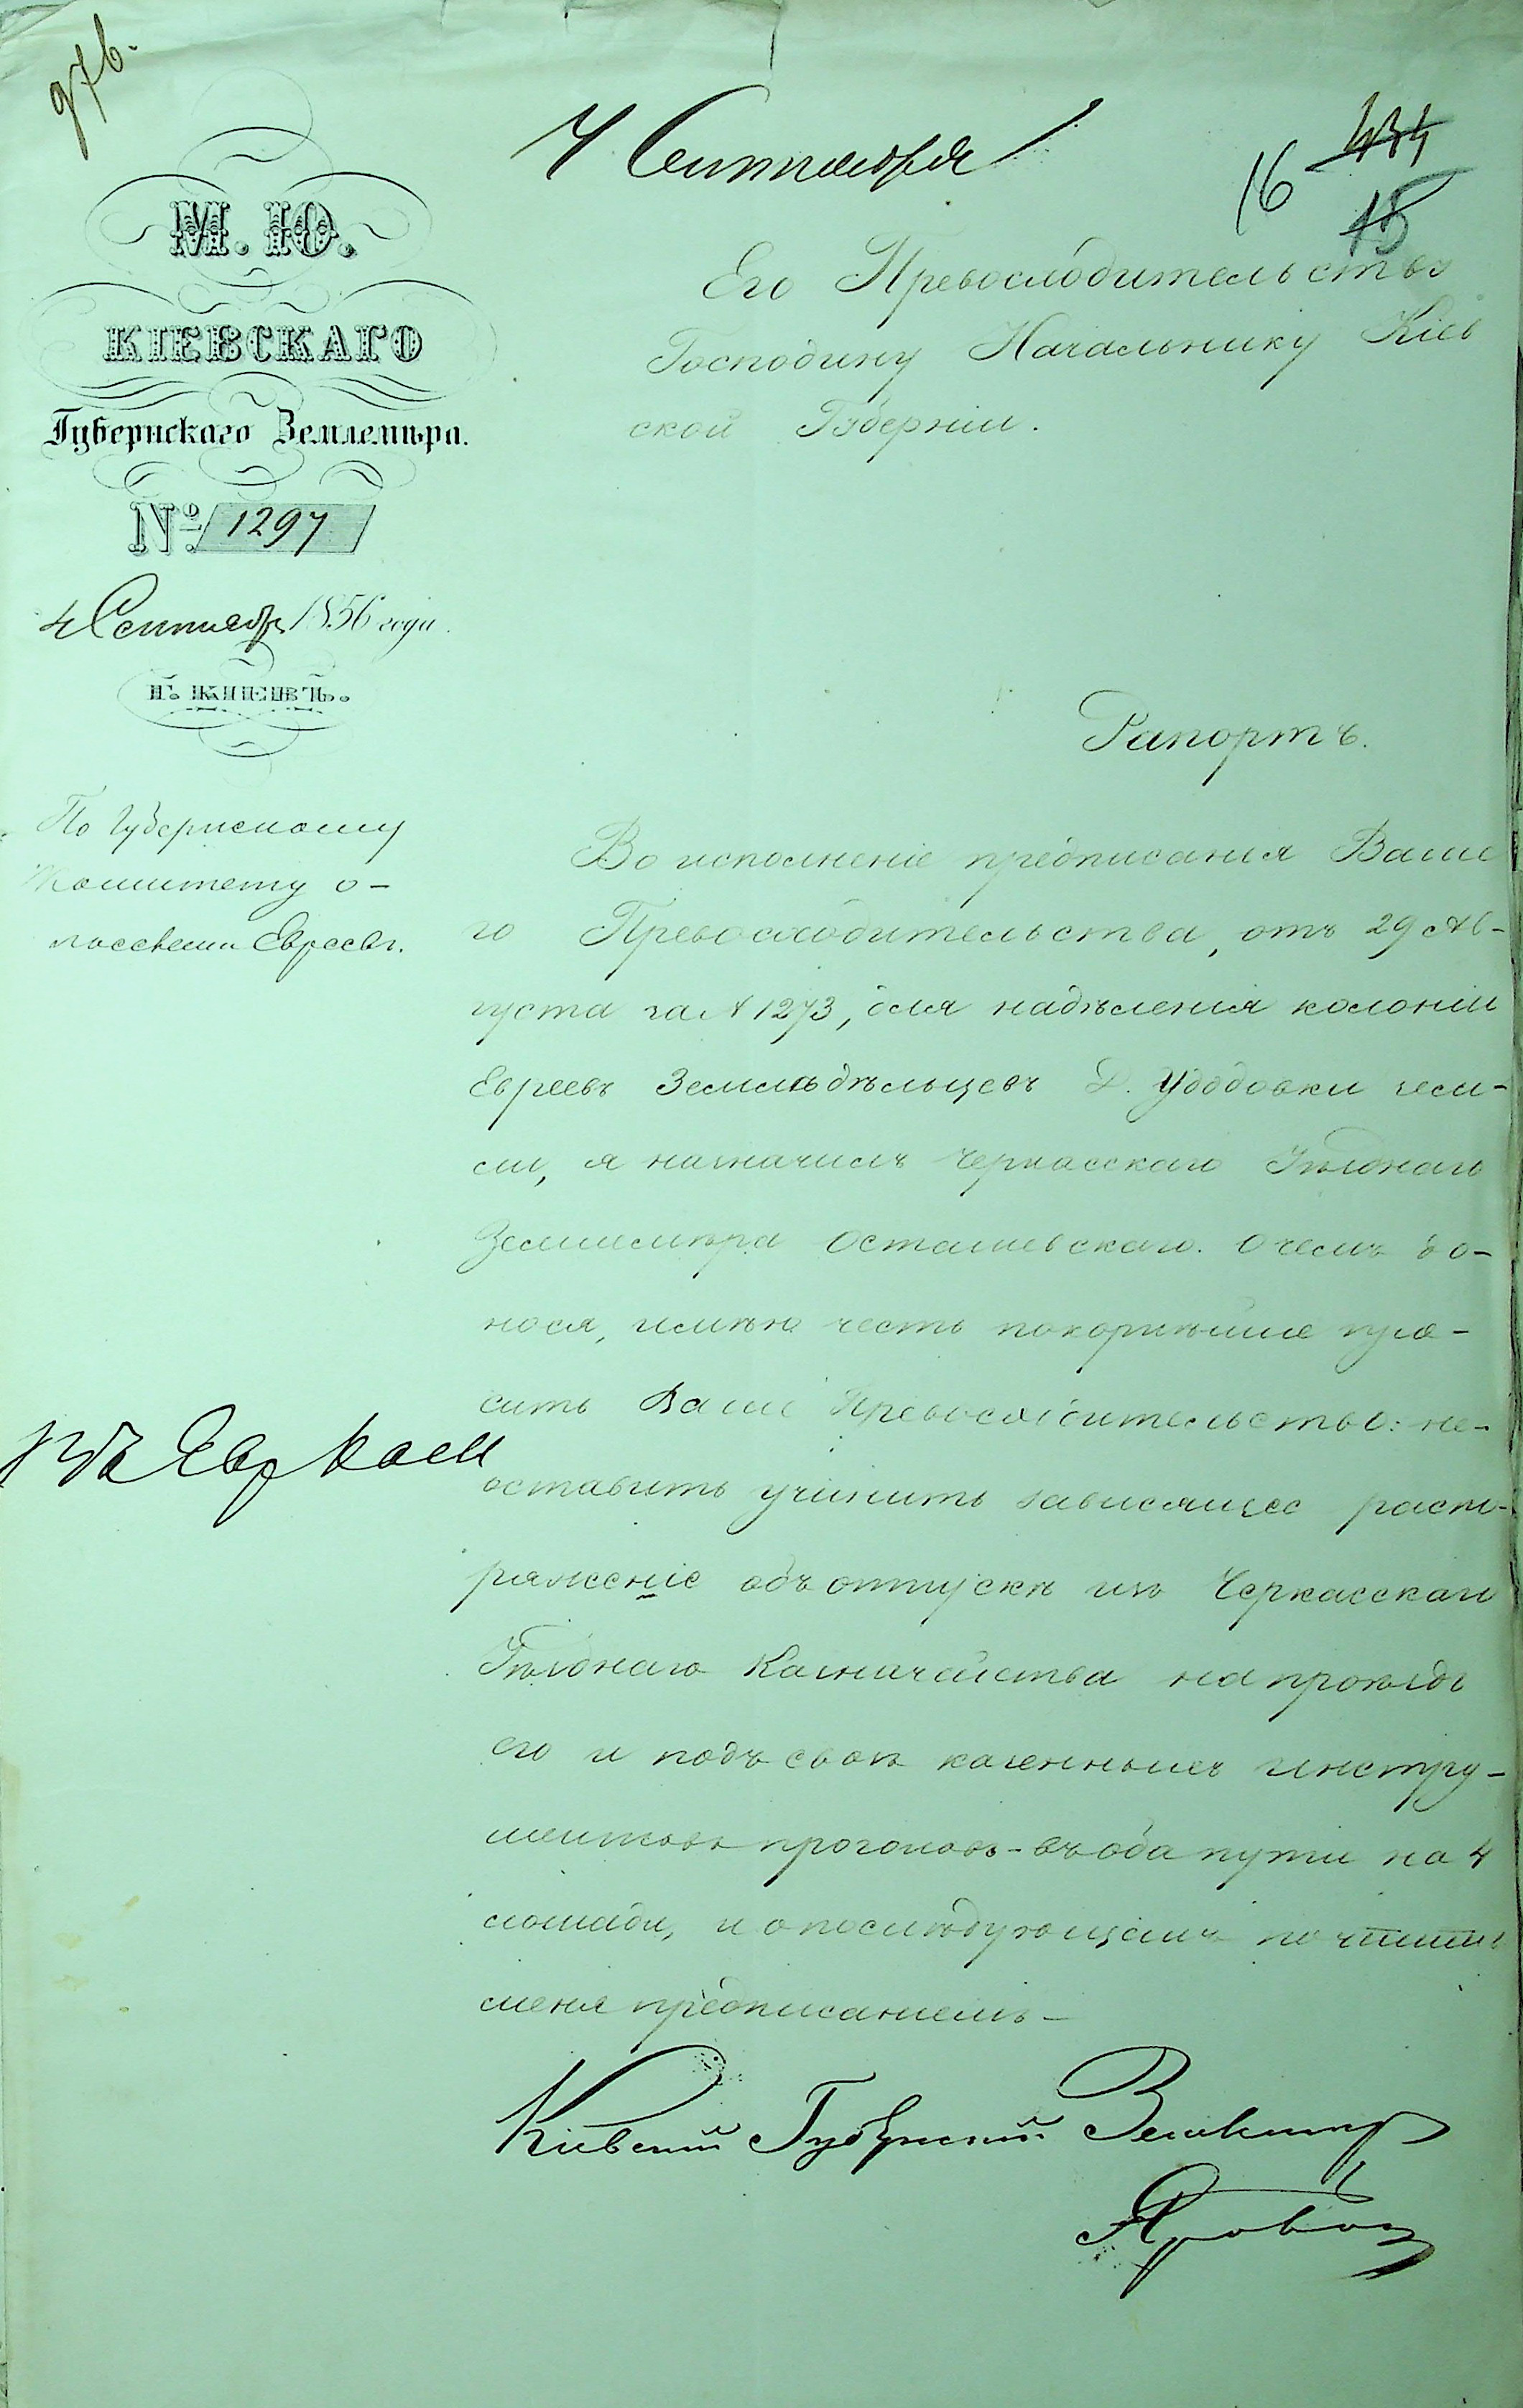 976.
4 Сентября
434
16
15
М. Ю.
КІЕВСКАГО
Губернскаго Землемѣра.
№ 1297
4 Сентября 1856 года.
Г. КІЕВЪ.
По Губернскому
Комитету о
поселеніи Евреевъ.
Его Превосходительству
Господину Начальнику Кіев
ской Губерніи.
Рапортъ.
Во исполненіе предписанія Ваше
го Превосходительства, отъ 29 Ав-
густа за № 1273, для надѣленія колоніи
Евреевъ Земледѣльцевъ Д. Удодовки зем-
ли, я назначилъ Черкасскаго Уѣзднаго
Землемѣра Осташевскаго. О чемъ до-
нося, имѣю честь покорнѣйше про-
сить Ваше Превосходительство: не-
оставить учинить зависящее распо-
ряженіе объ отпускѣ изъ Черкасскаго
Уѣзднаго Казначейства на проѣздъ
его и подъ свозъ казенныхъ инстру-
ментовъ прогоновъ - въ оба пути на 4
лошади, и о послѣдующемъ почтить
меня предписаніемъ -
Въ Евр Ком
Кіевскій Губернскій Землемѣръ